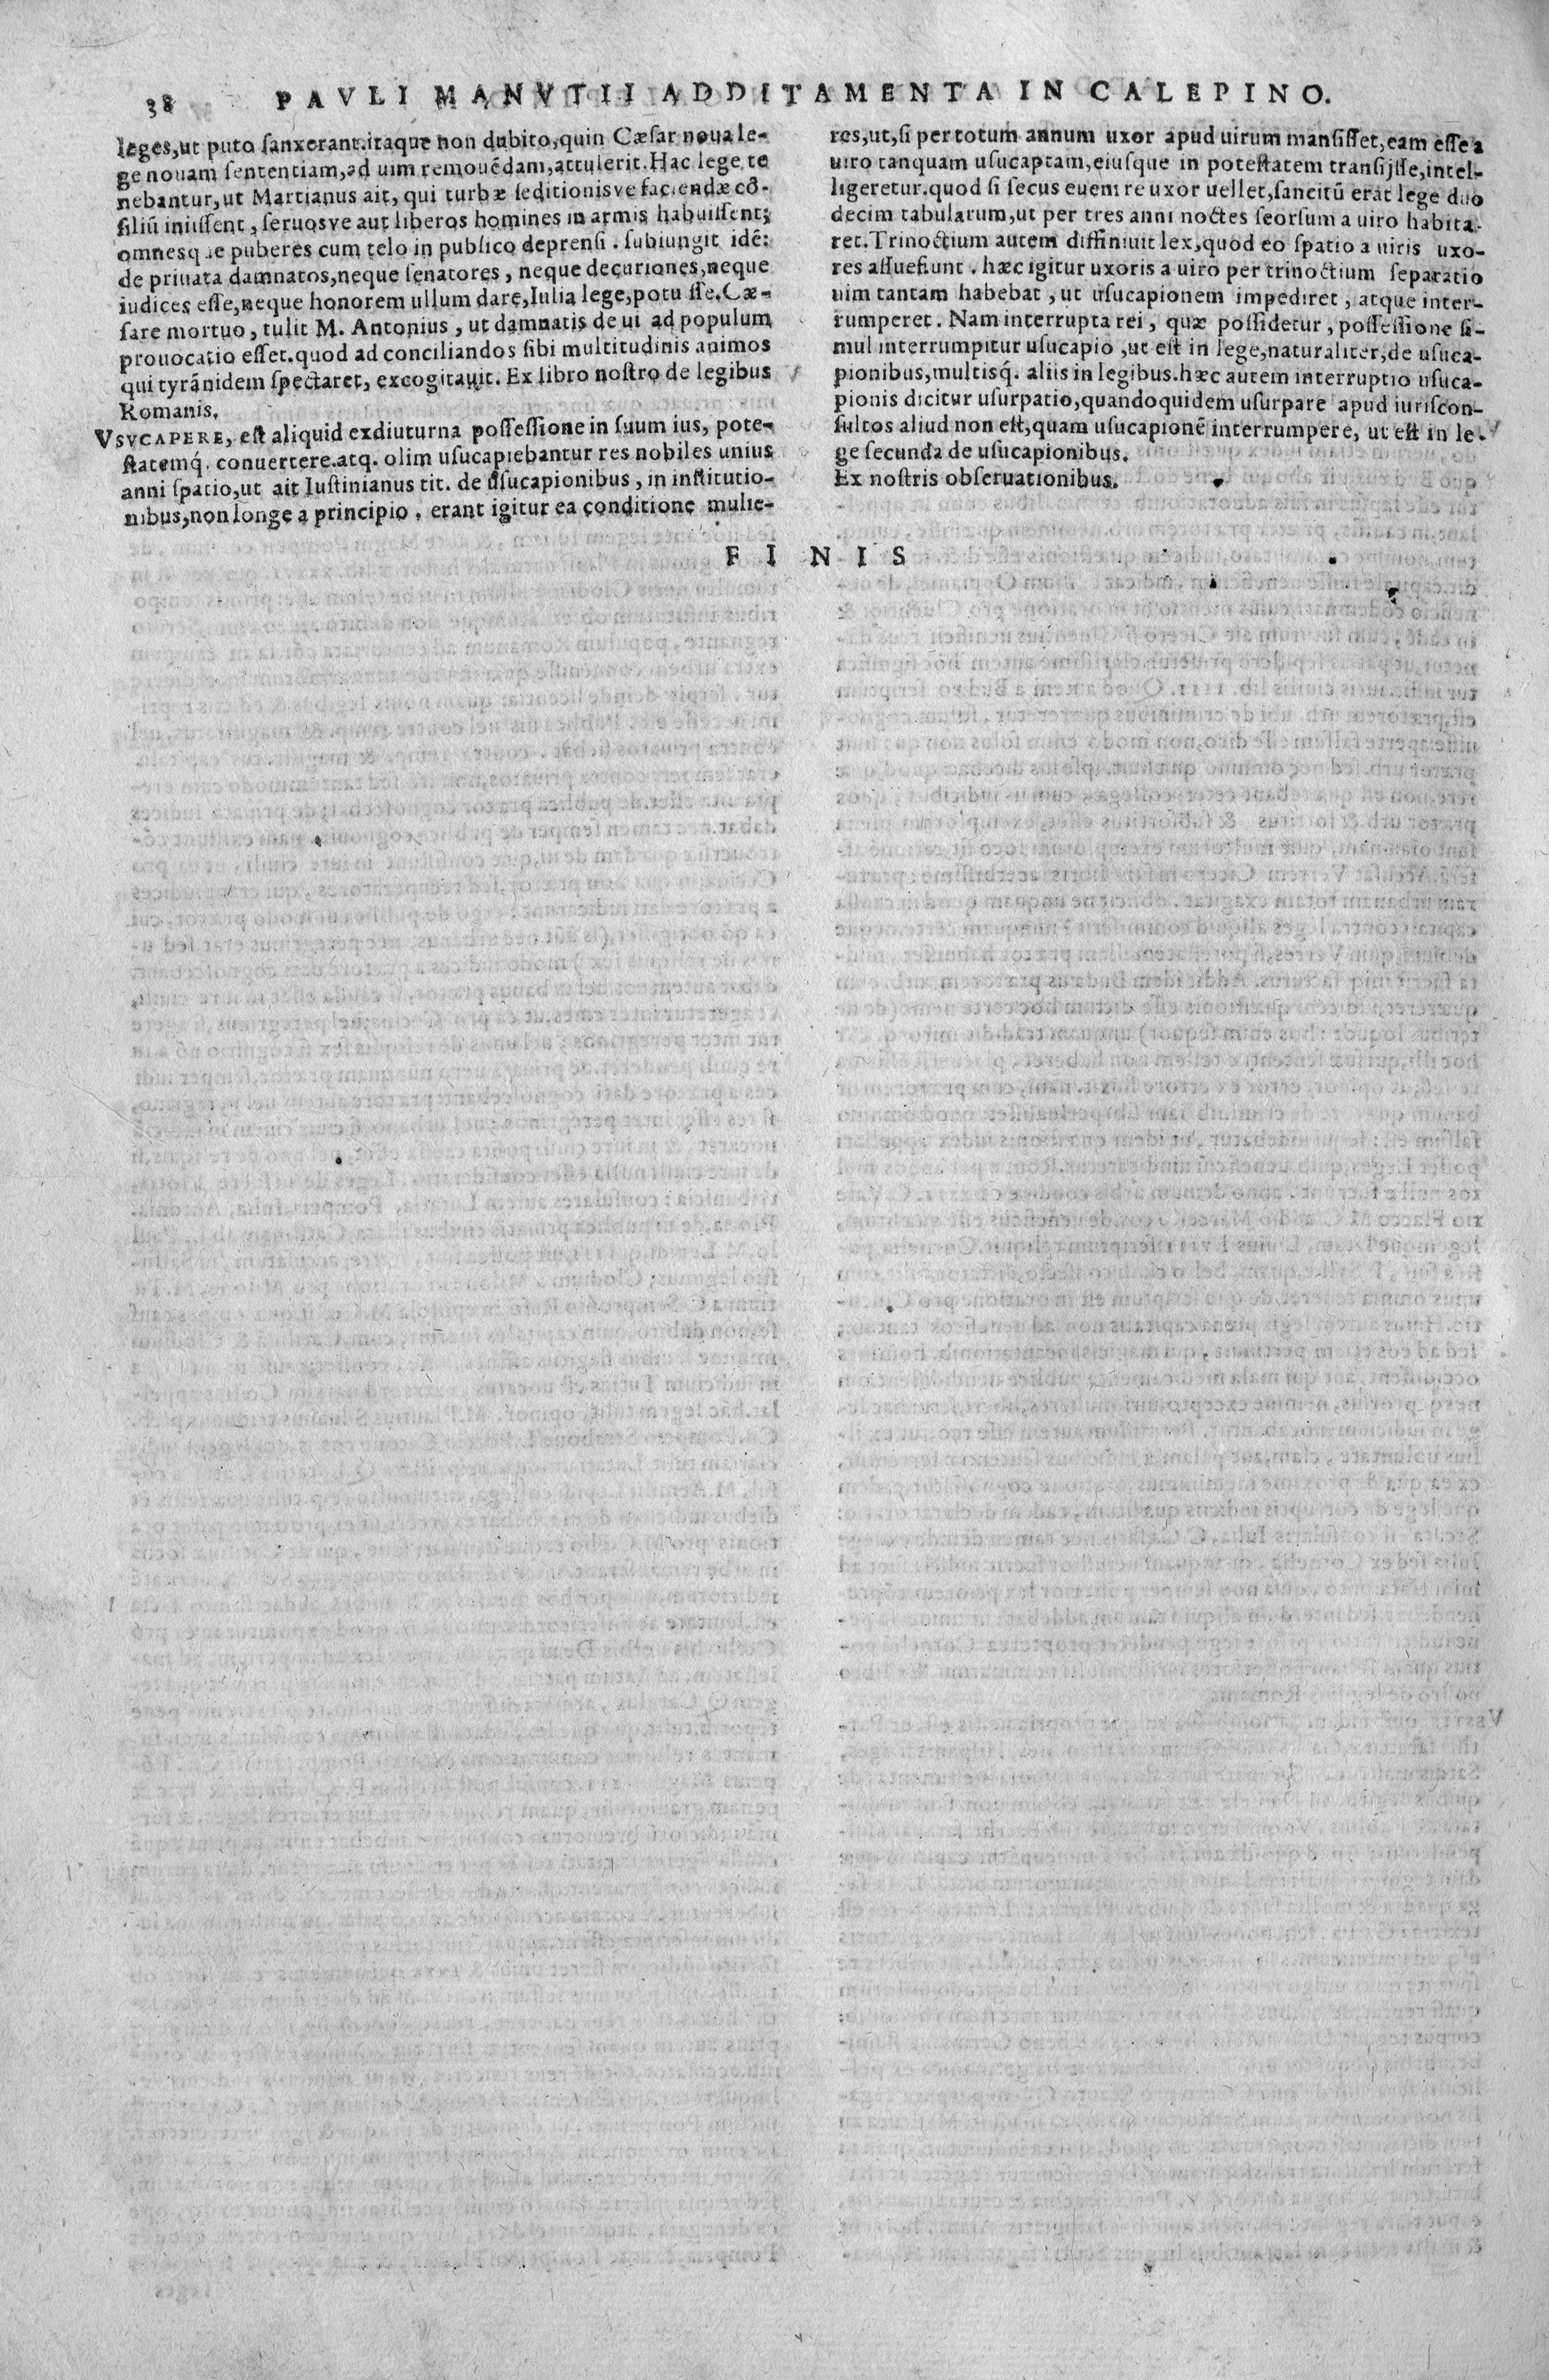 38 PAVLI MANVTII ADDITAMENTA IN CALEPINO.
leges,ut puto ſanxerant.itaque non dubito,quin Cæſar noua le-
ge nouam ſententiam,ad uim remouēdam,attulerit.Hac lege te
nebantur,ut Martianus ait, qui turbæ ſeditionisve faciendæ cō-
ſiliū iniiſſent, ſeruosve aut liberos homines in armis habuiſſent;
omnesq ue puberes cum telo in publico deprenſi. ſubiungit idē:
de priuata damnatos,neque ſenatores, neque decuriones,neque
iudices eſſe,neque honorem ullum dare,Iulia lege,potu iſſe.Cæ-
ſare mortuo, tulit M. Antonius, ut damnatis de ui ad populum
prouocatio eſſet.quod ad conciliandos ſibi multitudinis animos
qui tyrānidem ſpectaret, excogitauit. Ex libro noſtro de legibus
Romanis.
VSVCAPERE, eſt aliquid exdiuturna poſſeſſione in ſuum ius, pote-
ſtatemq́. conuertere.atq. olim uſucapiebantur res nobiles unius
anni ſpatio,ut ait Iuſtinianus tit. de uſucapionibus, in inſtitutio-
nibus,non longe a principio. erant igitur ea conditione mulie-
res,ut,ſi per totum annum uxor apud uirum manſiſſet,eam eſſe a
uiro tanquam uſucaptam,eiuſque in poteſtatem tranſijſſe,intel-
ligeretur.quod ſi ſecus euenire uxor uellet,ſancitū erat lege duo
decim tabularum,ut per tres anni noctes ſeorſum a uiro habita-
ret.Trinoctium autem diffiniuit lex,quod eo ſpatio a uiris uxo-
res aſſuefiunt. hæc igitur uxoris a uiro per trinoctium ſeparatio
uim tantam habebat, ut uſucapionem impediret, atque inter-
rumperet. Nam interrupta rei, quæ poſſidetur, poſſeſſione ſi-
mul interrumpitur uſucapio,ut eſt in lege,naturaliter,de uſuca-
pionibus,multisq́. aliis in legibus.hæc autem interruptio uſuca-
pionis dicitur uſurpatio,quandoquidem uſurpare apud iuriſcon-
ſultos aliud non eſt,quam uſucapionē interrumpere, ut eſt in le-
ge ſecunda de uſucapionibus.
Ex noſtris obſeruationibus.
FINIS